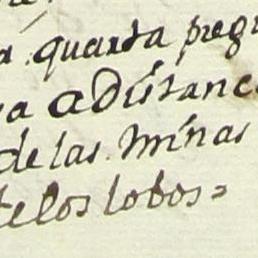 a quarta pregu
a adistanc
de las minas
telos lobos=